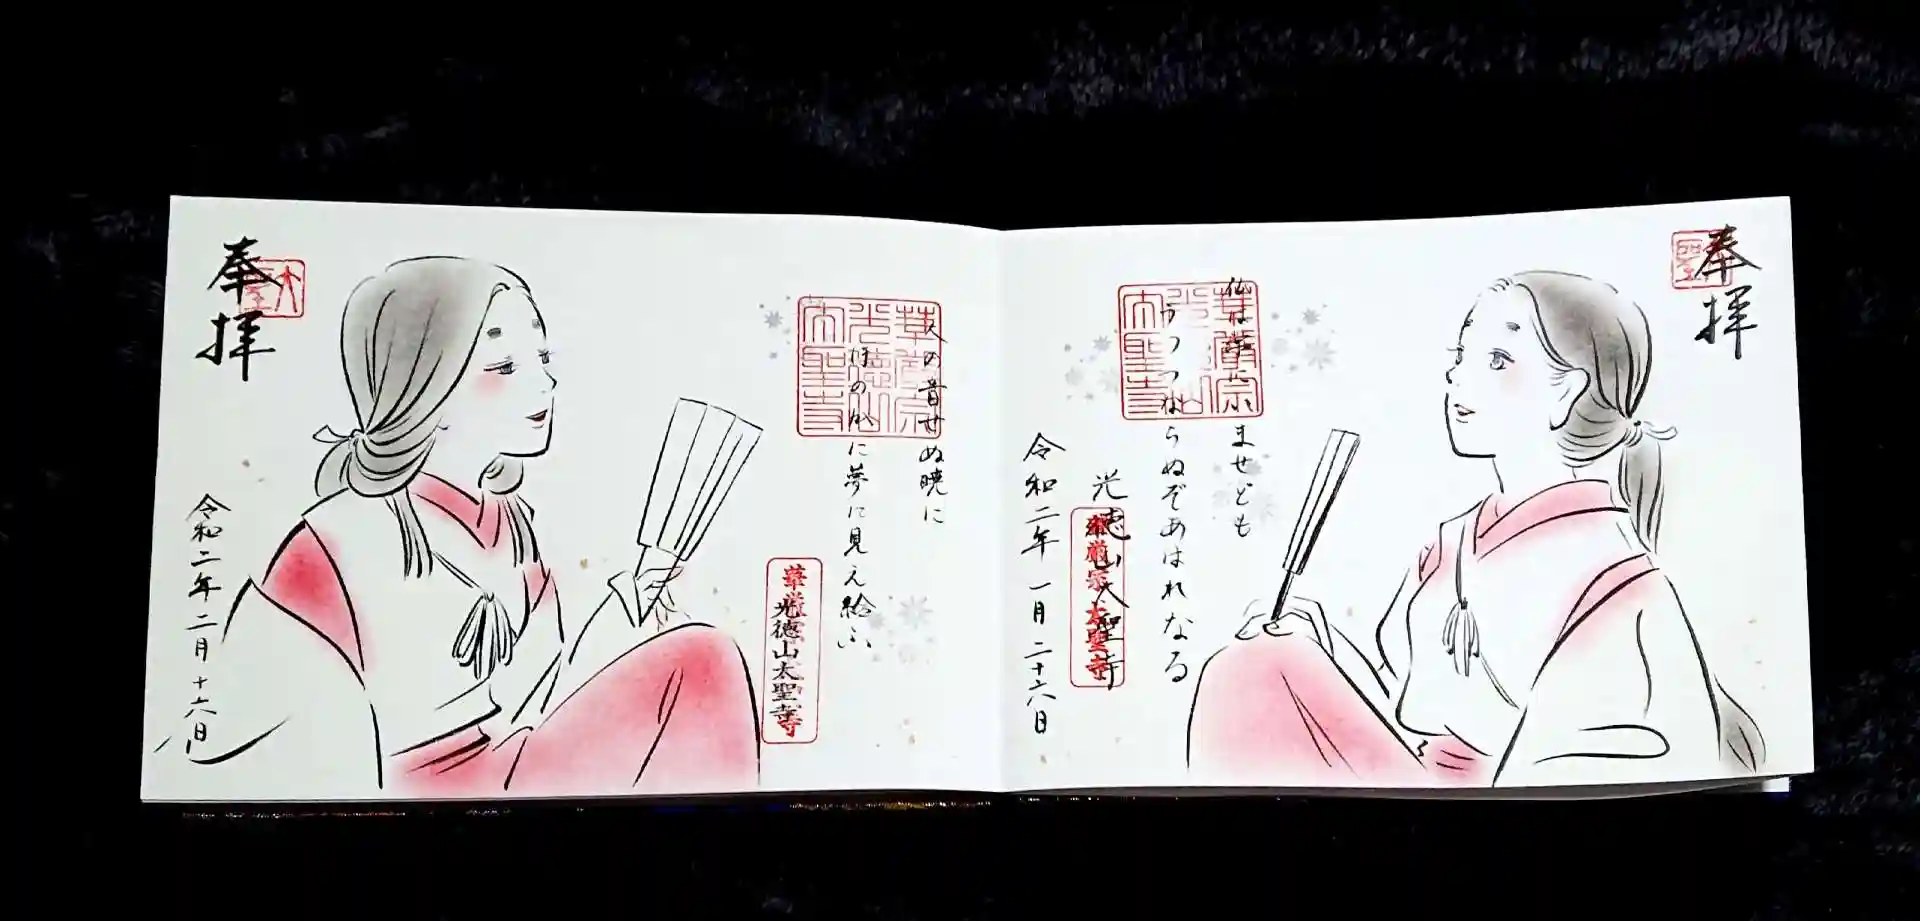 奉拝
仏は常にいませども
うつつならぬぞあはれなる
華厳宗
光徳山
太聖寺
光徳山太聖寺
華厳宗太聖寺
令和二年一月二十六日
人の音せぬ暁に
ほのかに夢に見え給ふ
華厳宗
光徳山
太聖寺
光徳山太聖寺
奉拝
令和二年二月十六日